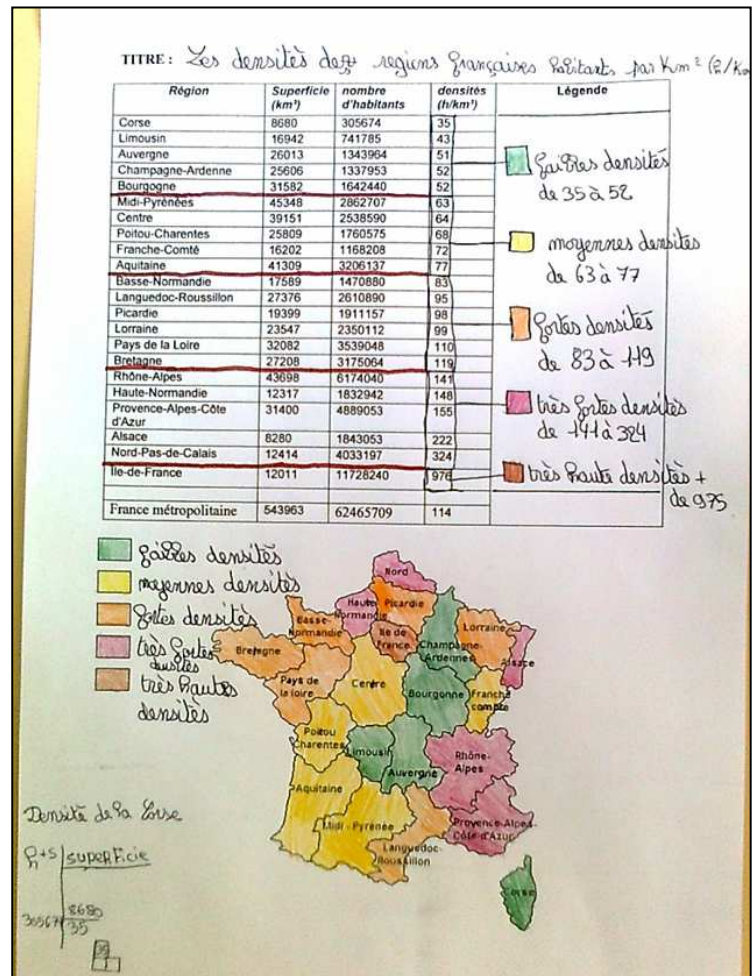 TITRE : Les densités des regions françaises habitants par Km² (h/Km
Région Superficie (km²) nombre d'habitants densités (h/km²) Légende
Corse 8680 305674 35
Limousin 16942 741785 43
Auvergne 26013 1343964 51
Champagne-Ardenne 25606 1337953 52
Bourgogne 31582 1642440 52
Midi-Pyrénées 45348 2862707 63
Centre 39151 2538590 64
Poitou-Charentes 25809 1760575 68
Franche-Comté 16202 1168208 72
Aquitaine 41309 3206137 77
Basse-Normandie 17589 1470880 83
Languedoc-Roussillon 27376 2610890 95
Picardie 19399 1911157 98
Lorraine 23547 2350112 99
Pays de la Loire 32082 3539048 110
Bretagne 27208 3175064 119
Rhône-Alpes 43698 6174040 141
Haute-Normandie 12317 1832942 148
Provence-Alpes-Côte d'Azur 31400 4889053 155
Alsace 8280 1843053 222
Nord-Pas-de-Calais 12414 4033197 324
Ile-de-France 12011 11728240 976
France métropolitaine 543963 62465709 114
faibles densités
de 35 à 52
moyennes densités
de 63 à 77
fortes densités
de 83 à 119
très fortes densités
de 141 à 324
très haute densités +
de 975
faibles densités
moyennes densités
fortes densités
très fortes
densités
très hautes
densités
Nord
Haute
Normandie
Picardie
Basse-
Normandie
Ile de
France
Champagne
Ardennes
Lorraine
Alsace
Bretegne
Pays de
la loire
Centre
Bourgonne
Franche
compte
Poitou
Charentes
Limousin
Auvergne
Rhône-
Alpes
Aquitaine
Midi - Pyrénée
Languedoc-
Roussillon
Provence-Alpes-
Côte d'Azur
Corse
Densité de la Corse
superficie
8680
35